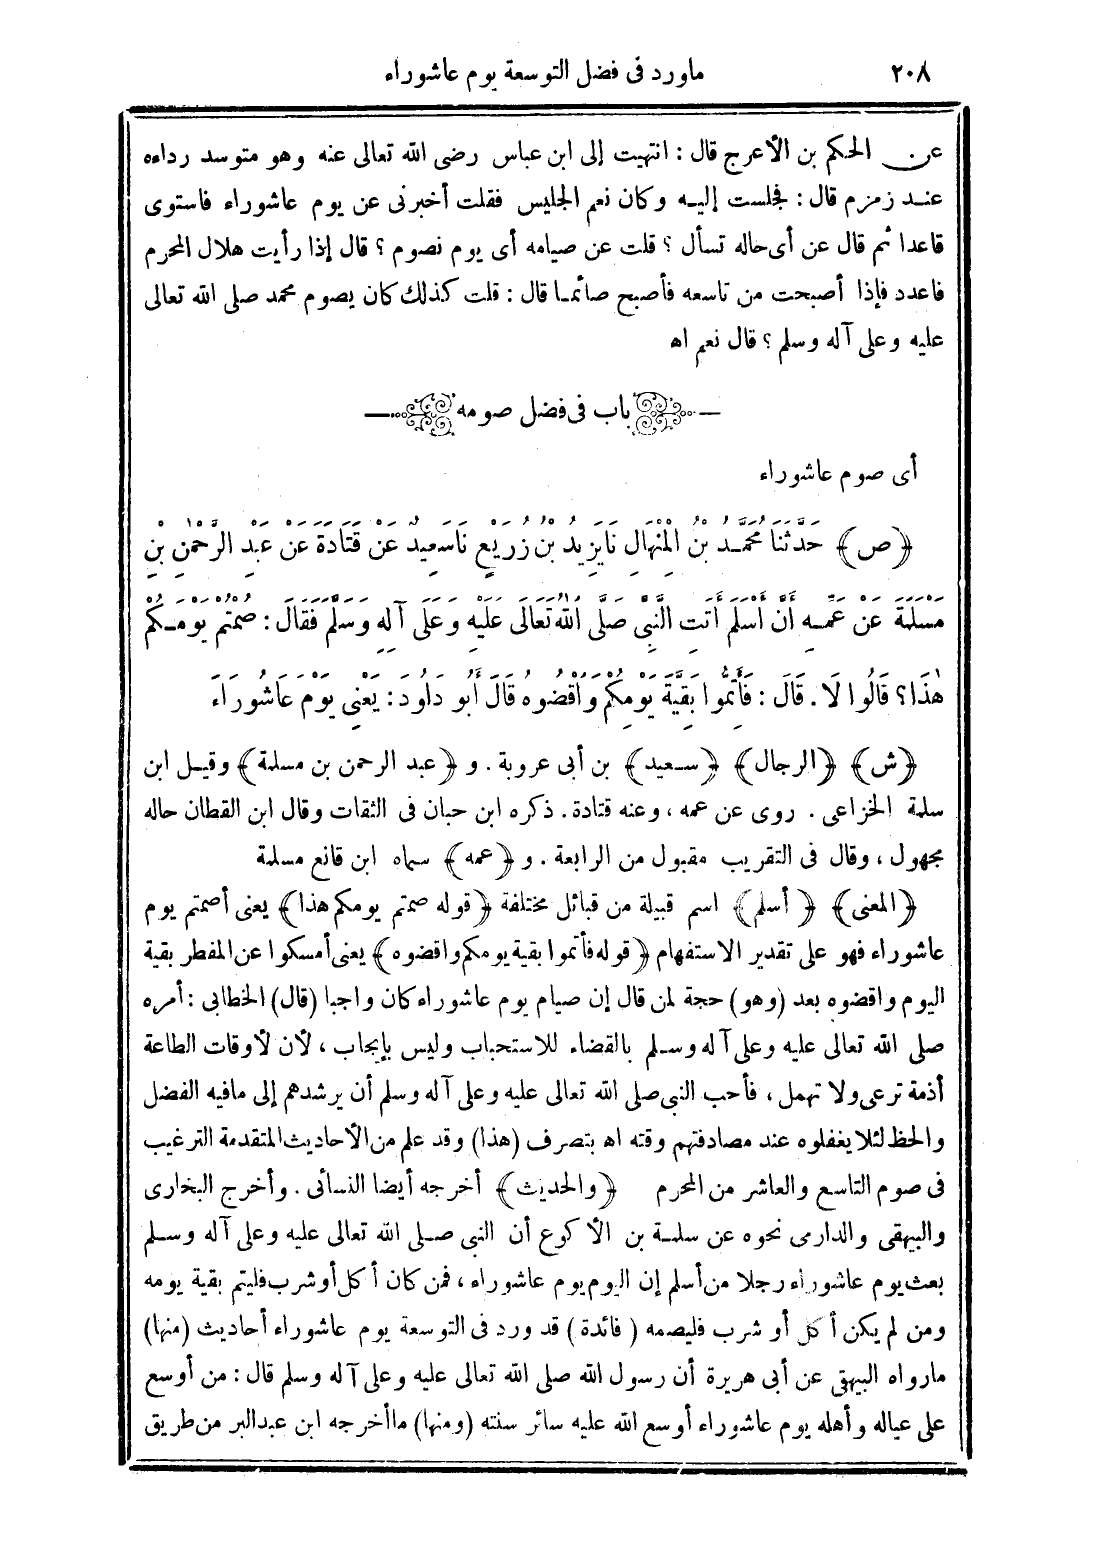 ٢٠٨ ماورد فى فضل التوسعة يوم عاشوراء
عن الحكم بن الأعرج قال : انتهيت إلى ابن عباس رضى الله تعالى عنه وهو متوسد رداءه
عند زمزم قال : فجلست إليه وكان نعم الجليس فقلت أخبرنى عن يوم عاشوراء فاستوى
قاعدا ثم قال عن أى حاله تسأل ؟ قلت عن صيامه أى يوم نصوم ؟ قال إذا رأيت هلال المحرم
فاعدد فإذا أصبحت من تاسعه فأصبح صائما قال : قلت كذلك كان يصوم محمد صلى الله تعالى
عليه وعلى آله وسلم ؟ قال نعم اه
باب فى فضل صومه
أى صوم عاشوراء
﴿ص﴾ حَدَّثَنَا مُحَمَّدُ بْنُ الْمِنْهَالِ نَا يَزِيدُ بْنُ زُرَيْعٍ نَا سَعِيدٌ عَنْ قَتَادَةَ عَنْ عَبْدِ الرَّحْمٰنِ بْنِ
مَسْلَمَةَ عَنْ عَمِّهِ أَنَّ أَسْلَمَ أَتَتِ النَّبِىَّ صَلَّى اللهُ تَعَالَى عَلَيْهِ وَعَلَى آلِهِ وَسَلَّمَ فَقَالَ : صُمْتُمْ يَوْمَكُمْ
هٰذَا؟ قَالُوا لَا . قَالَ : فَأَتِمُّوا بَقِيَّةَ يَوْمِكُمْ وَاقْضُوهُ قَالَ أَبُو دَاوُدَ : يَعْنِى يَوْمَ عَاشُورَاءَ
﴿ش﴾ ﴿الرجال﴾ ﴿سعيد﴾ بن أبى عروبة . و ﴿عبد الرحمن بن مسلمة﴾ وقيل ابن
سلمة الخزاعى . روى عن عمه ، وعنه قتادة . ذكره ابن حبان فى الثقات وقال ابن القطان حاله
مجهول ، وقال فى التقريب مقبول من الرابعة . و ﴿عمه﴾ سماه ابن قانع مسلمة
﴿المعنى﴾ ﴿أسلم﴾ اسم قبيلة من قبائل مختلفة ﴿قوله صمتم يومكم هذا﴾ يعنى أصمتم يوم
عاشوراء فهو على تقدير الاستفهام ﴿قوله فأتموا بقية يومكم واقضوه﴾ يعنى أمسكوا عن المفطر بقية
اليوم واقضوه بعد (وهو) حجة لمن قال إن صيام يوم عاشوراء كان واجبا (قال) الخطابى : أمره
صلى الله تعالى عليه وعلى آله وسلم بالقضاء للاستحباب وليس بإيجاب ، لأن لأوقات الطاعة
أذمة ترعى ولا تهمل ، فأحب النبى صلى الله تعالى عليه وعلى آله وسلم أن يرشدهم إلى مافيه الفضل
والحظ لئلا يغفلوه عند مصادفتهم وقته اه بتصرف (هذا) وقد علم من الأحاديث المتقدمة الترغيب
فى صوم التاسع والعاشر من المحرم ﴿والحديث﴾ أخرجه أيضا النسائى . وأخرج البخارى
والبيهقى والدارمى نحوه عن سلمة بن الأكوع أن النبى صلى الله تعالى عليه وعلى آله وسلم
بعث يوم عاشوراء رجلا من أسلم إن اليوم يوم عاشوراء ، فمن كان أكل أو شرب فليتم بقية يومه
ومن لم يكن أكل أو شرب فليصمه ( فائدة ) قد ورد فى التوسعة يوم عاشوراء أحاديث (منها)
مارواه البيهقى عن أبى هريرة أن رسول الله صلى الله تعالى عليه وعلى آله وسلم قال : من أوسع
على عياله وأهله يوم عاشوراء أوسع الله عليه سائر سنته (ومنها) ماأخرجه ابن عبدالبر من طريق